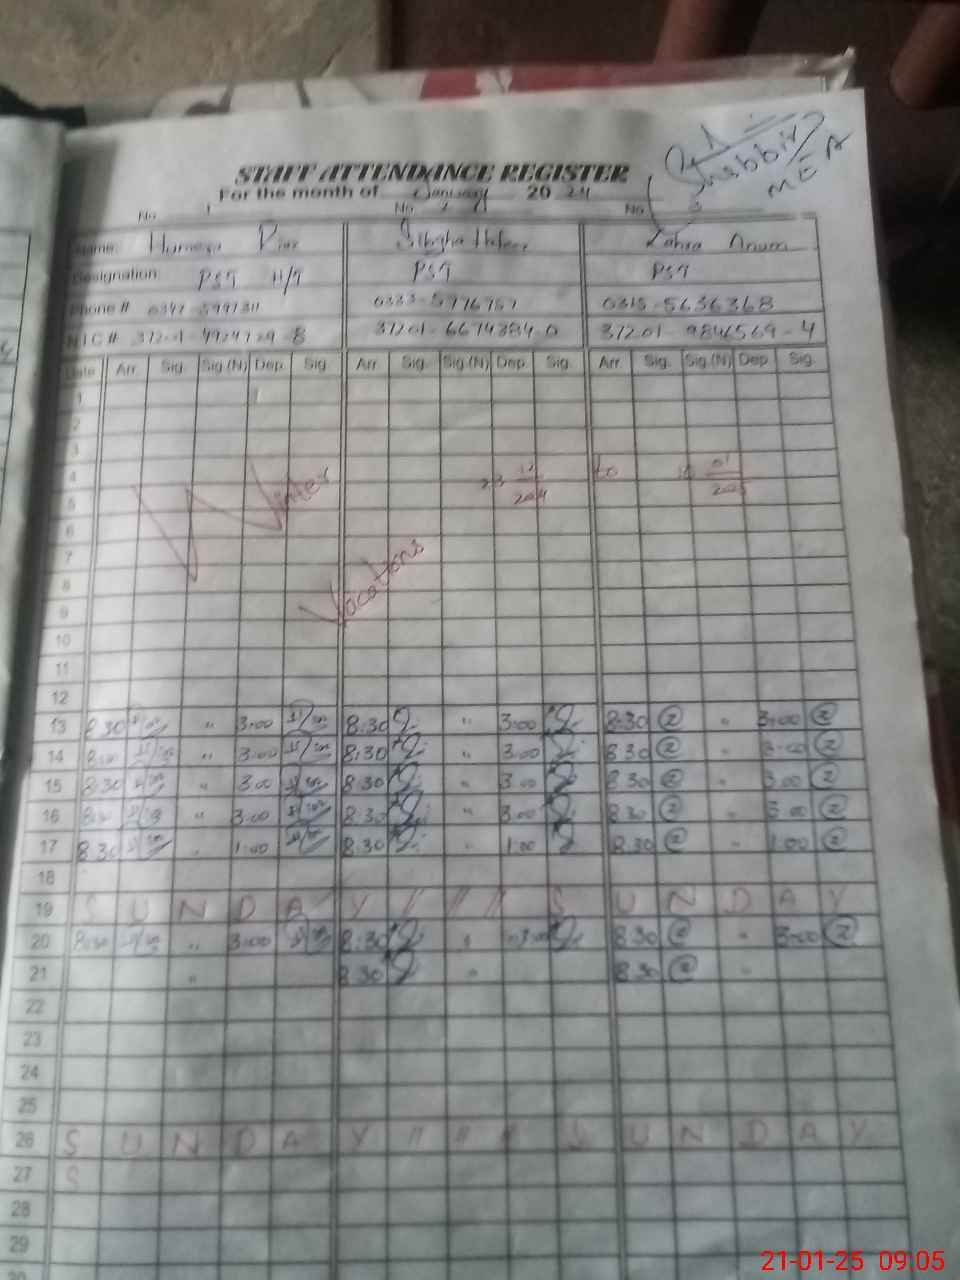 Shabbir
MEA
STAFF ATTENDANCE REGISTER
For the month of January 20 24
No 1 No 2 No 3
Name: Humera Sibgha Zahra Anum
Designation PST H/T PST PST
Phone # 0333-5776757 0315-5636368
NIC # 37201-6674384-0 37201-9846569-4
Date Arr. Sig. Sig.(N) Dep. Sig. Arr. Sig. Sig.(N) Dep. Sig. Arr. Sig. Sig.(N) Dep. Sig.
1
2
3
4 Winter 23 12/2024 to 01/2025
5
6
7
8 Vacations
9
10
11
12
13 8:30 " 3:00 8:30 " 3:00 8:30 " 3:00
14 8:30 " 3:00 8:30 " 3:00 8:30 " 3:00
15 8:30 " 3:00 8:30 " 3:00 8:30 " 3:00
16 8:30 " 3:00 8:30 " 3:00 8:30 " 3:00
17 8:30 " 1:00 8:30 " 1:00 8:30 " 1:00
18
19 S U N D A Y // // // S U N D A Y
20 8:30 " 3:00 8:30 " 3:00 8:30 " 3:00
21 " 8:30 " 8:30 "
22
23
24
25
26 S U N D A Y // // // S U N D A Y
27 S
28
29
21-01-25 09:05